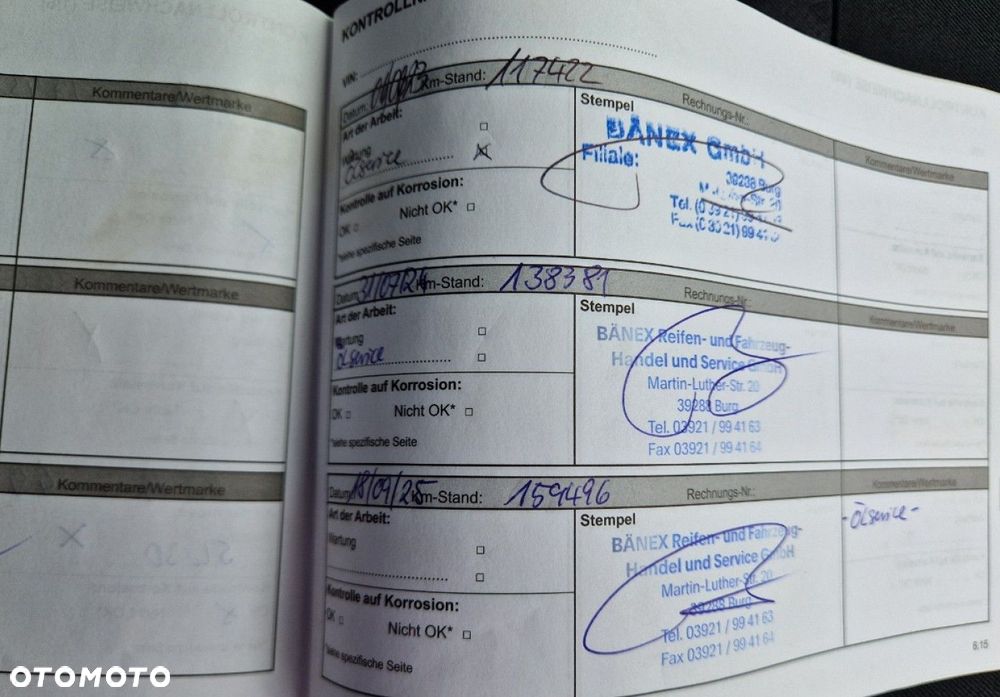 Kommentare/Wertmarke
Kommentare/Wertmarke
Kommentare/Wertmarke
KONTROLLN
VIN:
Datum: Km-Stand: 117422 Rechnungs-Nr.:
Art der Arbeit:
Wartung
Ölservice
Kontrolle auf Korrosion:
OK Nicht OK*
*siehe spezifische Seite
Stempel
BÄNEX GmbH
Filiale:
39288 Burg
Kommentare/Wertmarke
Datum: 31/07/24 Km-Stand: 138381 Rechnungs-Nr.:
Art der Arbeit:
Wartung
Ölservice
Kontrolle auf Korrosion:
OK Nicht OK*
*siehe spezifische Seite
Stempel
BÄNEX Reifen- und Fahrzeug-
Handel und Service GmbH
Martin-Luther-Str. 20
39288 Burg
Tel. 03921 / 99 41 63
Fax 03921 / 99 41 64
Kommentare/Wertmarke
Datum: 18/09/25 Km-Stand: 159496 Rechnungs-Nr.:
Art der Arbeit:
Wartung
Kontrolle auf Korrosion:
OK Nicht OK*
*siehe spezifische Seite
Stempel
BÄNEX Reifen- und Fahrzeug-
Handel und Service GmbH
Martin-Luther-Str. 20
39288 Burg
Tel. 03921 / 99 41 63
Fax 03921 / 99 41 64
Kommentare/Wertmarke
-Ölservice-
6.15
OTOMOTO